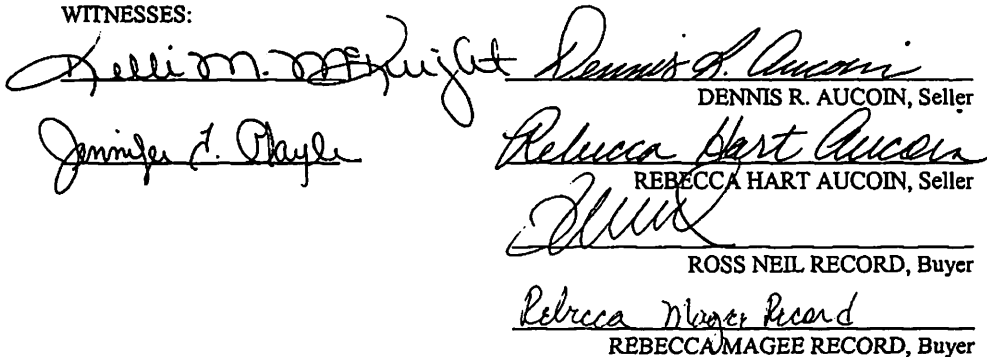 WITNESSES:
Kelli M. McKnight
Dennis R. Aucoin
DENNIS R. AUCOIN, Seller
Jennifer L. Playle
Rebecca Hart Aucoin
REBECCA HART AUCOIN, Seller
ROSS NEIL RECORD, Buyer
Rebecca Magee Record
REBECCA MAGEE RECORD, Buyer